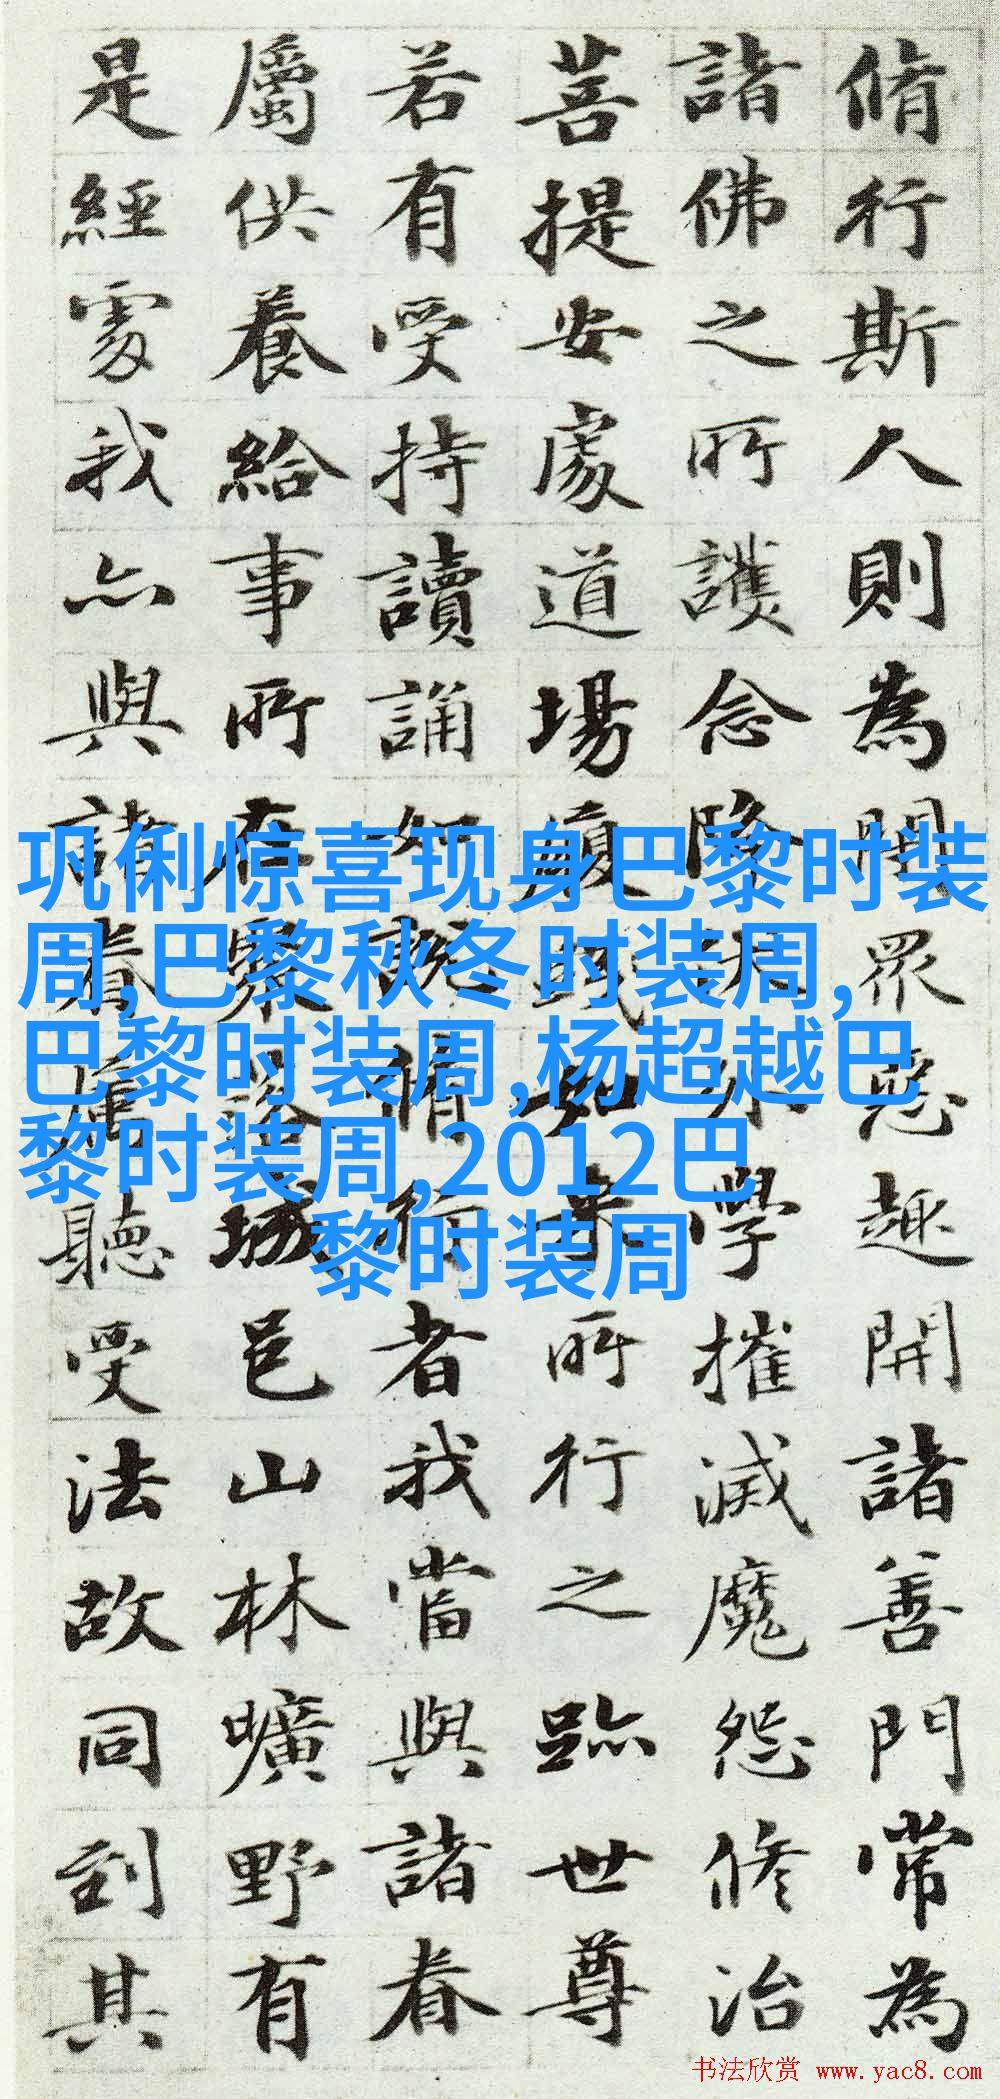 脩行斯人則為閇眾惡趣開諸善門常為
諸佛之所護念降伏外學摧滅魔怨修治
菩提安處道場履踐如來所行之跡世尊
若有受持讀誦如說脩行者我當與諸眷
屬供養給事所在聚落城邑山林曠野有
是經處我亦與諸眷屬聽受法故同到其
巩俐惊喜现身巴黎时装
周,巴黎秋冬时装周,
巴黎时装周,杨超越巴
黎时装周,2012巴
黎时装周
书法欣赏 www.yac8.com